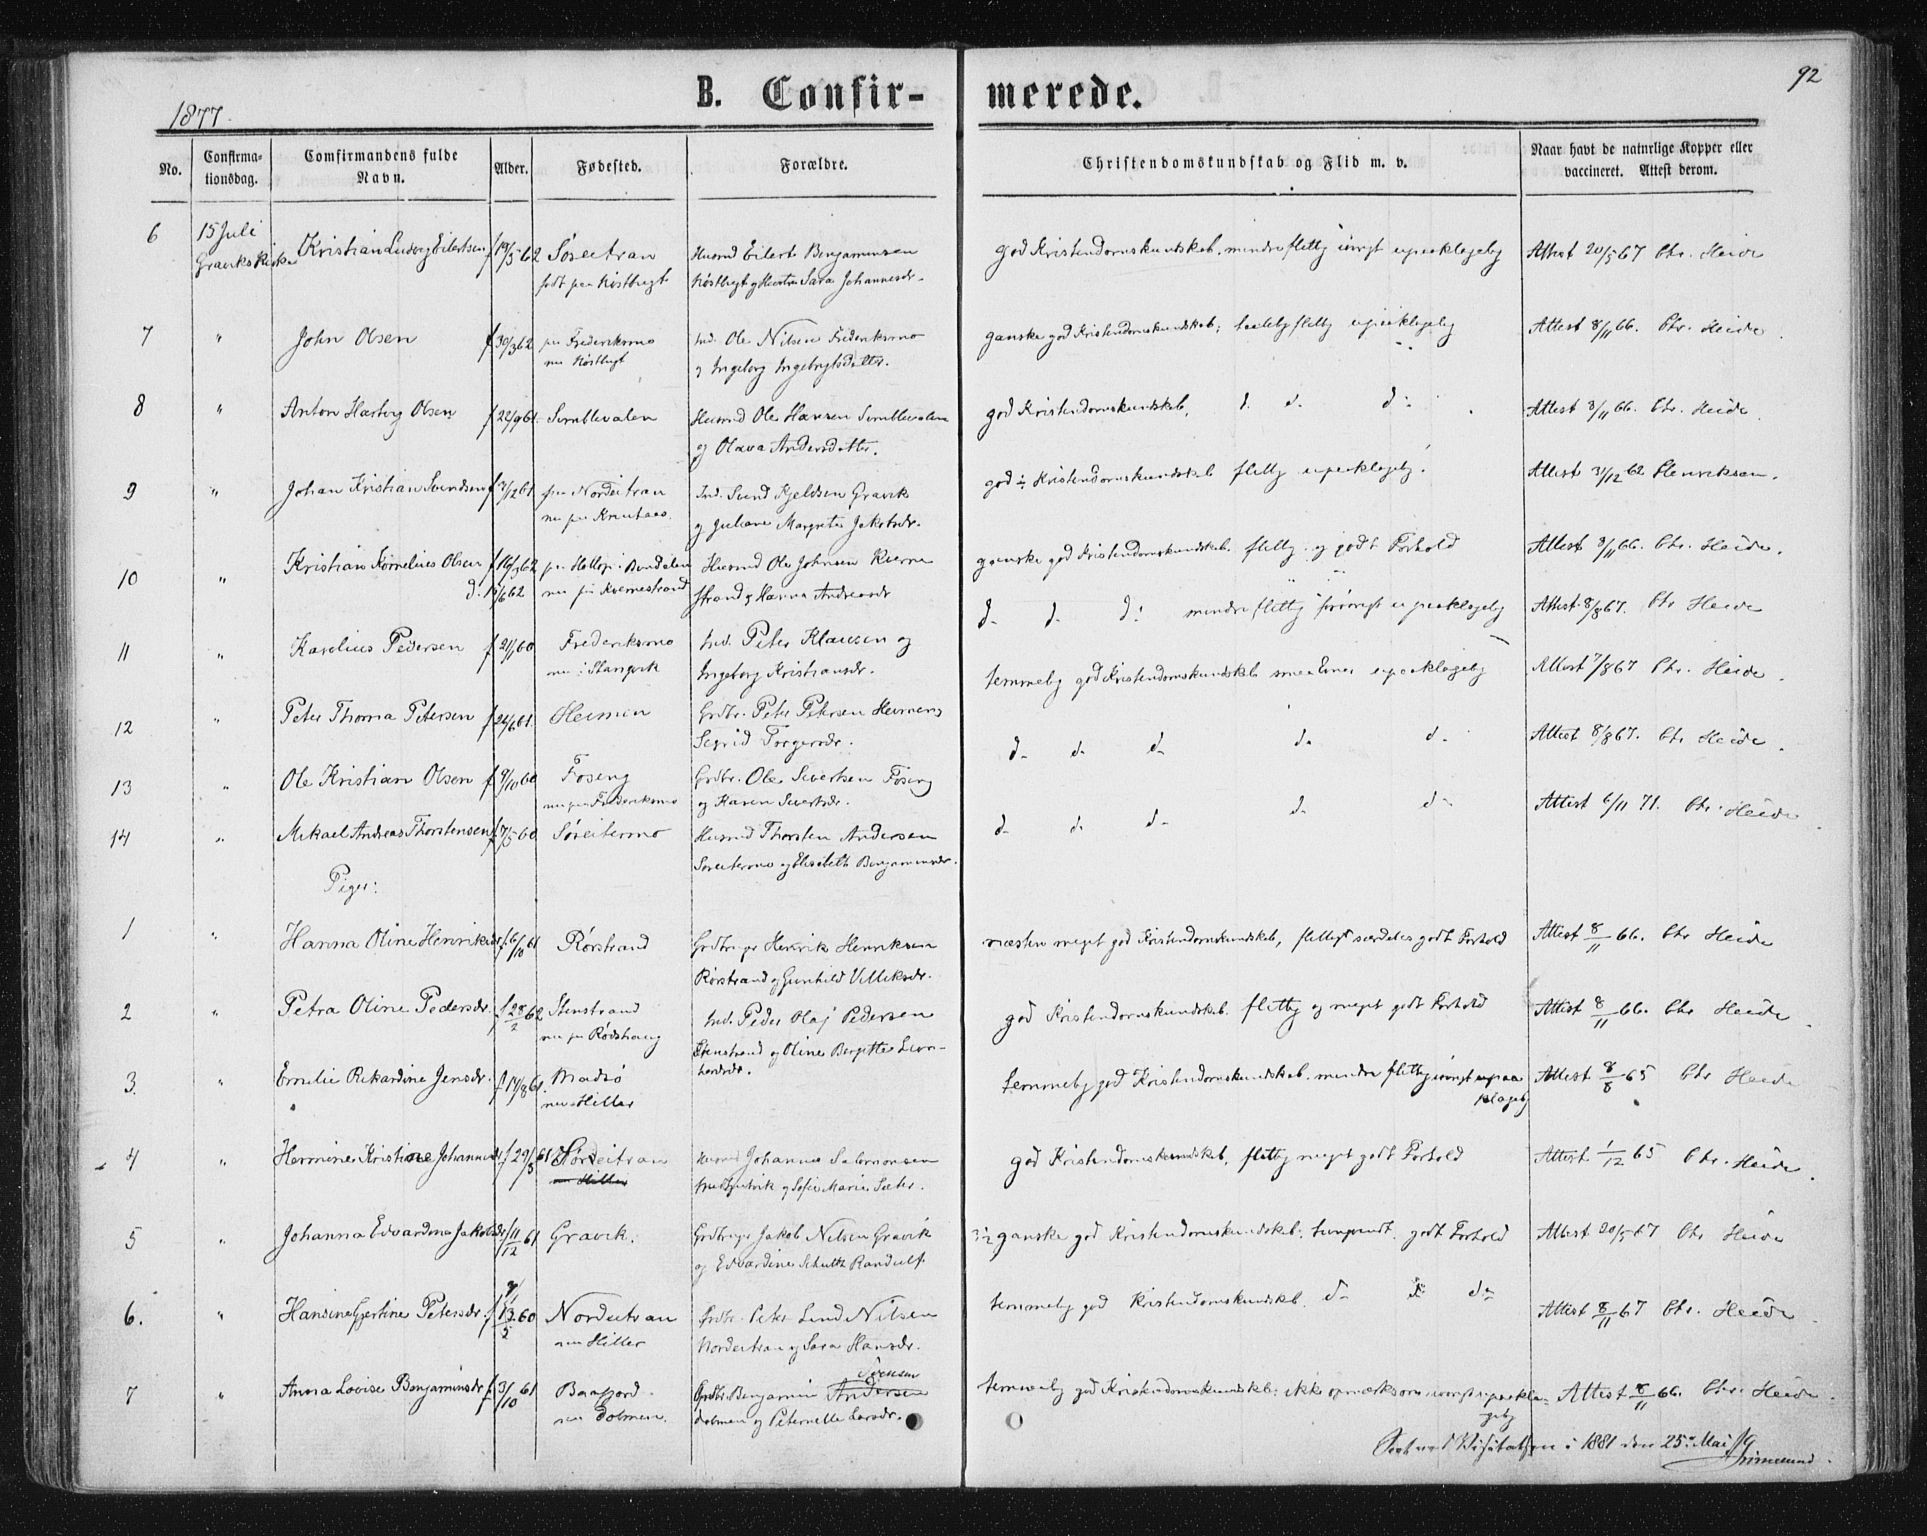 92
B. Confir- merede.
1877.
No. Confirma- tionsdag. Comfirmandens fulde Navn. Alder. Fødested. Forældre. Christendomskundskab og Flid m. v. Naar havt de naturlige Kopper eller vaccineret. Attest derom.
6 15 Juli Kristian Ludvig Eilertsen f 19/5 62 Søreitran Husmd Eilert Benjaminsen god Kristendomskundskab, mindre flittig iøvrigt upaaklagelig Attest 20/5 67 Chr. Heide
Graviks Kirke født paa Kostbugt og Hustru Sara Johannesdr.
7 " John Olsen f 30/3 62 paa Frederiksmo Ind. Ole Nilsen Frederiksmo ganske god Kristendomskundskab; flittig upaaklagelig Attest 8/11 66. Chr. Heide
nu og Ingeborg Ingebrigtsdatter.
8 " Anton Hartvig Olsen f 22/9 61. Simblevalen Husmd Ole Hansen Simblevalen god Kristendomskundskab, d. d. d. Attest 8/11 66. Chr. Heide
og Olava Andersdatter.
9 " Johan Kristian Svendsen f 3/12 61 paa Nordeitran Ind. Svend Kjeldsen Gravik god ÷ Kristendomskundskab flittig upaaklagelig. Attest 31/12 62 Henriksen.
nu paa og Juliane Margrete Jakobsdr.
10 " Kristian Kornelius Olsen f 16/3 62 Husmd Ole Johnsen Kverne ganske god Kristendomskundskab. flittig og godt Forhold Attest 8/11 66. Chr. Heide.
nu paa Kvernestrand strand og Hanna Andreasdr
11 " Karolius Pedersen f 21/1 60 Frederiksmo Ind. Peter Klausen og d- d- d: mindre flittig forøvrigt upaaklagelig Attest 8/8 67. Chr Heide
nu i Stangvik Ingeborg Kristiansdr.
12 " Peter Thoma Petersen f 24/6 61. Heimen Grdbr. Peter Petersen Heimen og temmelig god Kristendomskundskab upaaklagelig Attest 7/8 67 Chr. Heide.
Sigrid Torgersdr.
13 " Ole Kristian Olsen f 9/10 60 Fosing Grdbr. Ole Sivertsen Fosing d- d- d- d- d- Attest 8/8 67. Chr Heide.
nu paa Frederiksmo og Karen Sivertsdr.
14 " Mikael Andreas Thorstensen f 7/5 60 Søreitermo Husmd Thorsten Andersen d- d- d- d- d- Attest 6/11 71. Chr. Heide
Søreitermo og Elisabeth Benjaminsdr.
Piger:
1 " Hanna Oline Henriksdr f. 6/10 61 Rørstrand Grdbruger Henrik Henriksen næsten meget god Kristendomskundskab, flittig særdeles godt Forhold Attest 8/11 66. Chr Heide
Rørstrand og Gunhild Villiksdr.
2 " Petra Oline Pedersdr f 28/2 62 Stenstrand Ind. Peder Olaj Pedersen god Kristendomskundskab. flittig og meget godt Forhold Attest 8/11 66. Chr Heide
nu paa Rødshaug Stenstrand og Oline Bergitte Leon-
hardsdr.
3. " Emilie Rikardine Jensdr. f 14/8 61. Madsø temmelig god Kristendomskundskab. mindre flittig iøvrigt upaa Attest 8/8 65 Chr Heide
nu Hitter klagelig
4 " Hermine Kristine Johannesdr f 29/3 61 Søreitran Husmd Johannes Salomonsen god Kristendomskundskab, flittig meget godt Forhold Attest 1/12 65 Chr. Heide.
nu Hitter og Sofie Marie Sæter.
5 " Johanna Edvardina Jakobsdr f 11/12 61 Gravik. Grdbruger Jakob Nilsen Gravik ganske god Kristendomskundskab: godt Forhold Attest 20/5 67 Chr Heide
og Edvardine Schult Randulf
6. " Hansine Gjertine Petersdr. f 13/5 60 Nordeitran Grdbr. Peter Lund Nilsen temmelig god Kristendomskundskab. d- d- Attest 8/11 67 Chr. Heide
nu Hitter Nordeitran og Sara Hansdr.
7 " Anna Lovise Benjaminsdr f 3/10 61 Baafjord Grdbr. Benjamin Andersen temmelig god Kristendomskundskab: ikke opmærksom iøvrigt upaakla- Attest 8/11 66. Chr. Heide.
nu Dolmen. Dolmen og Peternelle Larsdr. gelig
Seet ved Visitatsen i 1881 den 25de Mai
Grimelund.